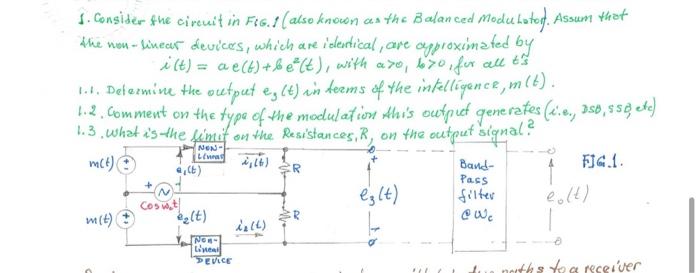 1. Consider the circuit in FIG.1 (also known as the Balanced Modulator). Assum that
the non-linear devices, which are identical, are approximated by
i(t) = a e(t) + b e²(t), with a>0, b>0, for all t's
1.1. Determine the output e₃(t) in terms of the intelligence, m(t).
1.2. Comment on the type of the modulation this output generates (i.e., DSB, SSB, etc)
1.3. What is the limit on the Resistances, R, on the output signal?
NON-
Linear
m(t)
e₁(t)
i₁(t)
R
Cos ω_c t
e₃(t)
Band-
Pass
filter
@ ω_c
FIG.1.
e₀(t)
m(t)
e₂(t)
i₂(t)
R
Non-
Linear
DEVICE
paths to a receiver